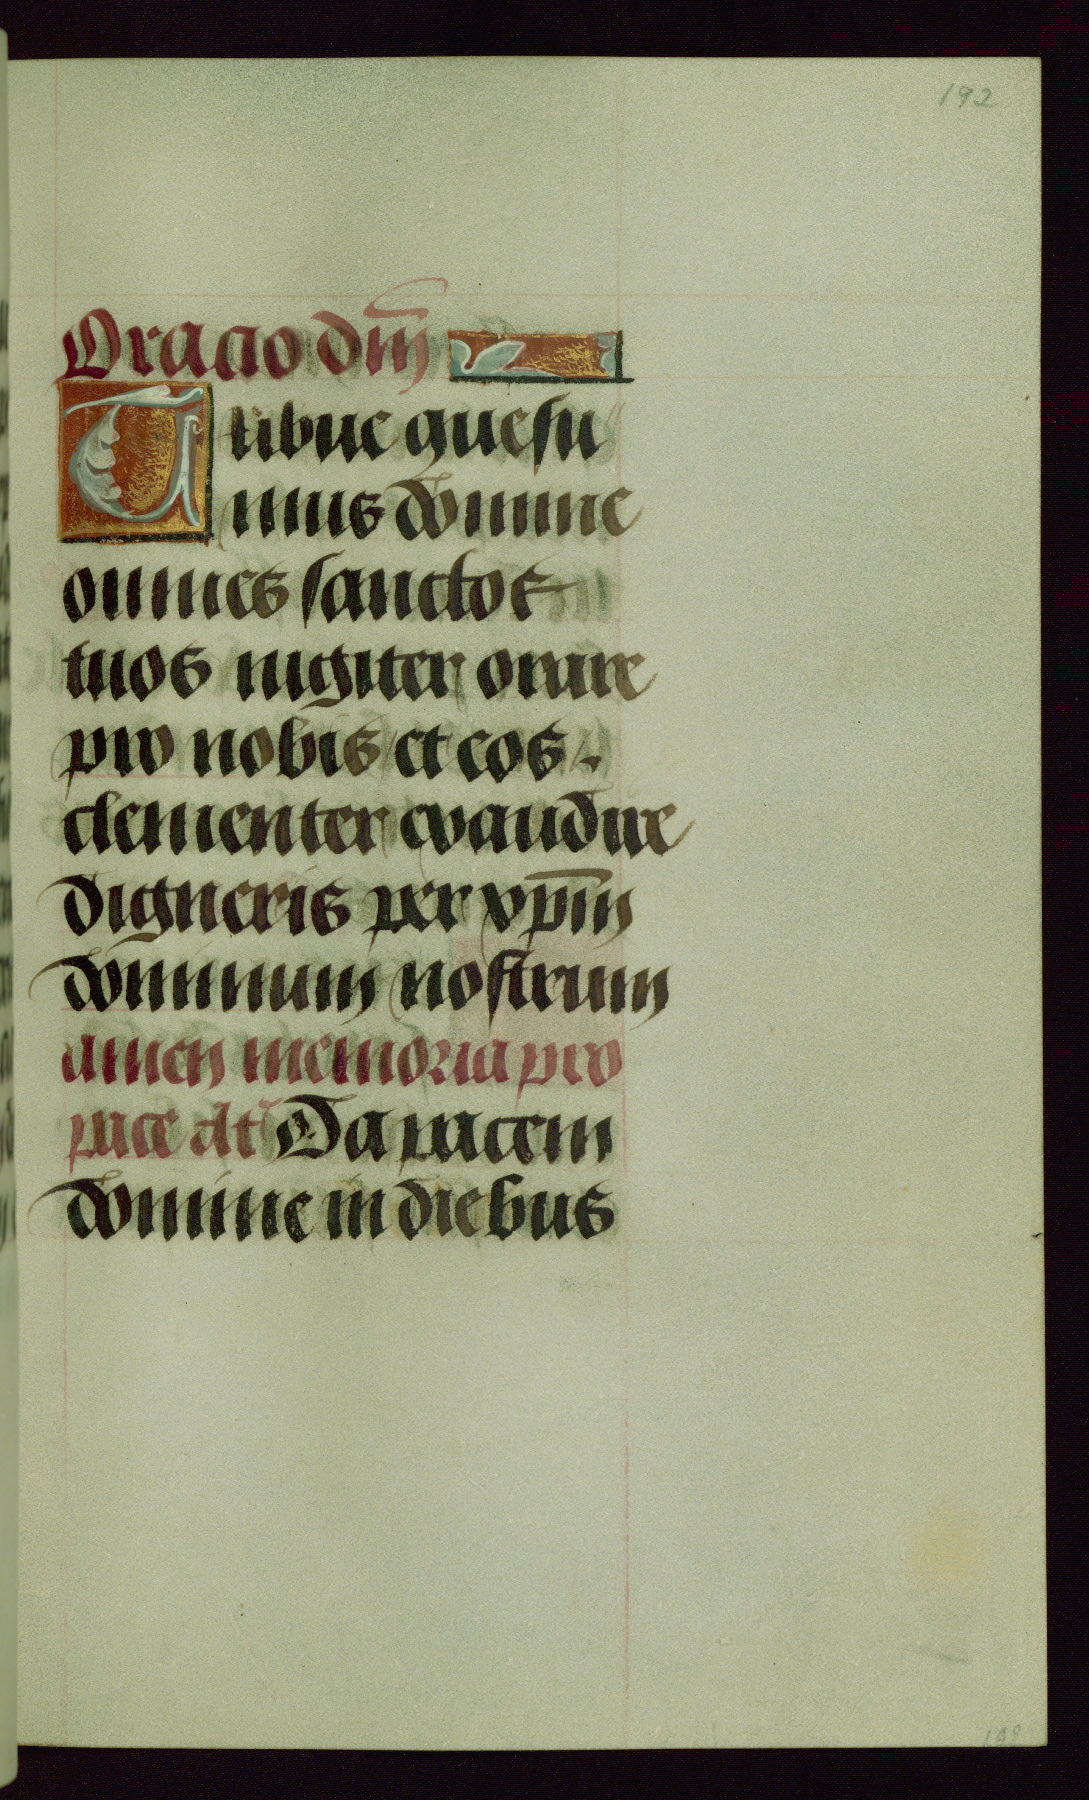 192
Oracio dm̄
Tribue quesu
mus domine
omnes sanctos
tuos iugiter orare
pro nobis et eos
clementer exaudire
digneris per xp̄m
dominum nostrum
amen memoria pro
pace Da pacem
domine in diebus